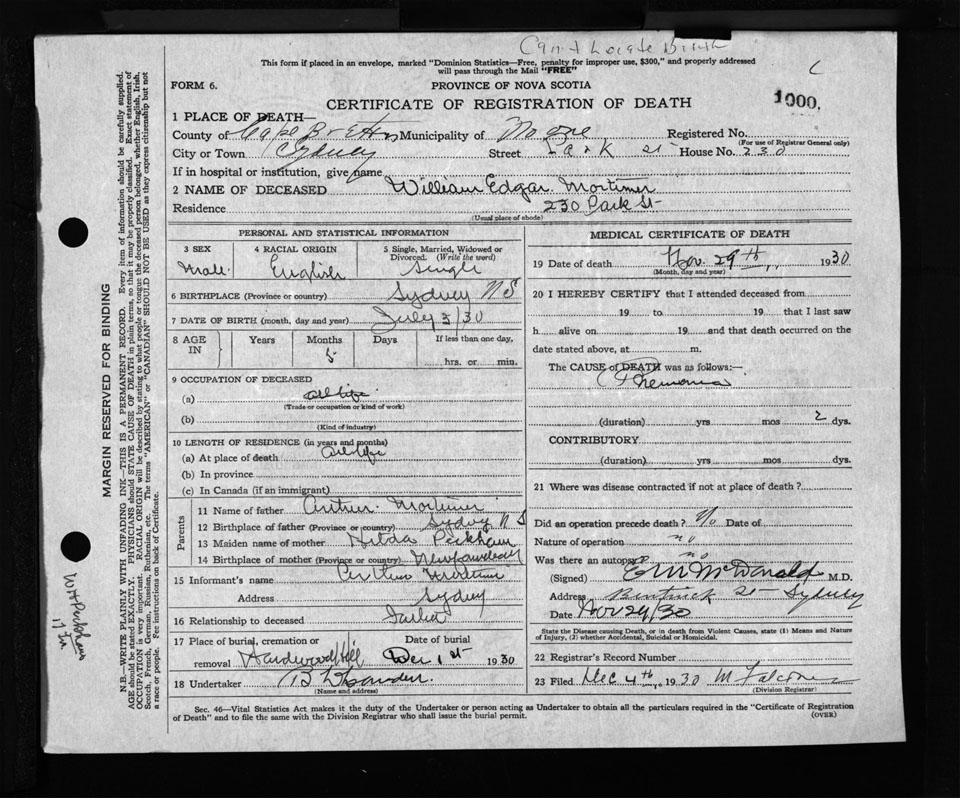 Can't Locate Birth
This form if placed in an envelope, marked "Dominion Statistics—Free, penalty for improper use, $300," and properly addressed
will pass through the Mail "FREE"
FORM 6.
PROVINCE OF NOVA SCOTIA
CERTIFICATE OF REGISTRATION OF DEATH
1000.
1 PLACE OF DEATH—
County of Cape Breton Municipality of Registered No.
(For use of Registrar General only)
City or Town Sydney Street Park St House No. 230
If in hospital or institution, give name
2 NAME OF DECEASED William Edgar Mortimer
Residence 230 Park St
(Usual place of abode)
PERSONAL AND STATISTICAL INFORMATION
3 SEX 4 RACIAL ORIGIN 5 Single, Married, Widowed or
Divorced. (Write the word)
Male English Single
6 BIRTHPLACE (Province or country) Sydney N S
7 DATE OF BIRTH (month, day and year) July 3/30
8 AGE IN Years Months Days If less than one day,
5 hrs. or min.
9 OCCUPATION OF DECEASED
(a)
(Trade or occupation or kind of work)
(b)
(Kind of industry)
10 LENGTH OF RESIDENCE (in years and months)
(a) At place of death All life
(b) In province
(c) In Canada (if an immigrant)
Parents
11 Name of father Arthur Mortimer
12 Birthplace of father (Province or country) Sydney N S
13 Maiden name of mother Hilda Peckham
14 Birthplace of mother (Province or country) Newfoundland
15 Informant's name Arthur Mortimer
Address Sydney
16 Relationship to deceased Father
17 Place of burial, cremation or Date of burial
removal Hardwood Hill Dec 1st 1930
18 Undertaker
(Name and address)
MEDICAL CERTIFICATE OF DEATH
19 Date of death Nov. 29th, 1930
(Month, day and year)
20 I HEREBY CERTIFY that I attended deceased from
19 to 19 that I last saw
h alive on 19 and that death occurred on the
date stated above, at m.
The CAUSE of DEATH was as follows:—
Pneumonia
(duration) yrs mos 2 dys.
CONTRIBUTORY
(duration) yrs. mos. dys.
21 Where was disease contracted if not at place of death?
Did an operation precede death? No Date of
Nature of operation no
Was there an autopsy no
(Signed) McDonald M.D.
Address Bentinck St Sydney
Date Nov 29/30
State the Disease causing Death, or in death from Violent Causes, state (1) Means and Nature
of Injury, (2) whether Accidental, Suicidal or Homicidal.
22 Registrar's Record Number
23 Filed Dec 4th 1930 M Falconer
(Division Registrar)
Sec. 46—Vital Statistics Act makes it the duty of the Undertaker or person acting as Undertaker to obtain all the particulars required in the "Certificate of Registration
of Death" and to file the same with the Division Registrar who shall issue the burial permit.
(OVER)
MARGIN RESERVED FOR BINDING
N.B.—WRITE PLAINLY WITH UNFADING INK—THIS IS A PERMANENT RECORD. Every item of information should be carefully supplied.
AGE should be stated EXACTLY. PHYSICIANS should STATE CAUSE OF DEATH in plain terms, so that it may be properly classified. Exact statement of
OCCUPATION is very important. RACIAL ORIGIN will be described by stating to what people or tongue the deceased person belonged, whether English, Irish,
Scotch, French, German, Russian, Ruthenian, etc. The terms "AMERICAN" or "CANADIAN" SHOULD NOT BE USED as they express citizenship but not
a race or people. Fee instructions on back of Certificate.